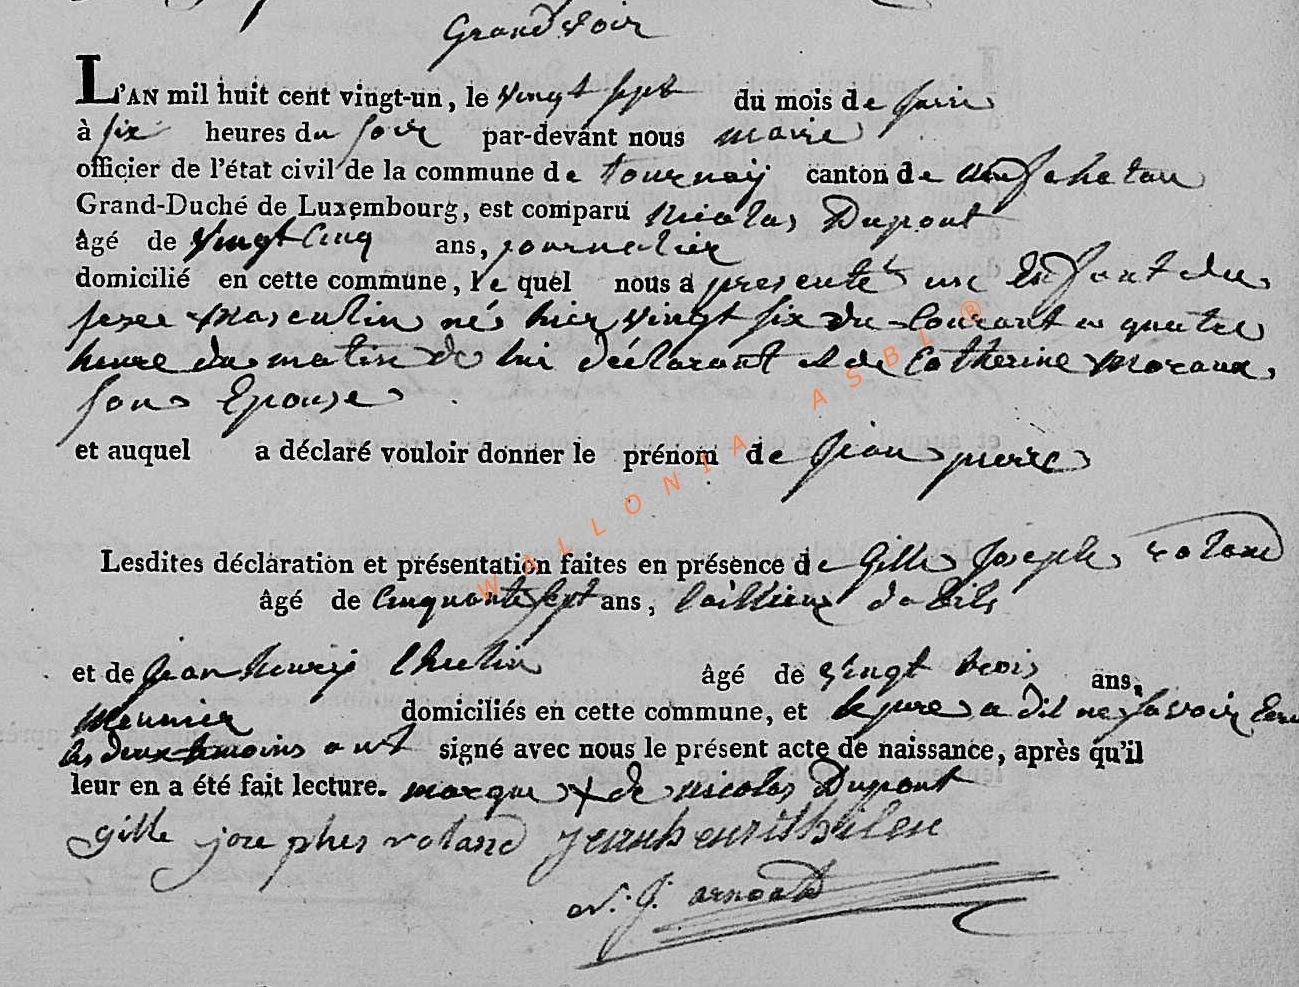 Grandvoir
L'AN mil huit cent vingt-un, le vingt sept du mois de juin
à six heures du soir par-devant nous maire
officier de l'état civil de la commune de tournay canton de neufchatau
Grand-Duché de Luxembourg, est comparu Nicolas Dupont
âgé de vingt Cinq ans, journalier
domicilié en cette commune, le quel nous a presenté un Enfant du
sexe Masculin né hier vingt six du Courant a quatre
heure du matin de lui déclarant et de Catherine Moraux
son Epouse
et auquel a déclaré vouloir donner le prénom de jean pierre
Lesdites déclaration et présentation faites en présence de Gille Joseph roland
âgé de Cinquante sept ans, tailleur dabits
et de jean henry
âgé de vingt trois ans,
Meunier domiciliés en cette commune, et le pere a dit ne savoir
les deux temoins ont signé avec nous le présent acte de naissance, après qu'il
leur en a été fait lecture. marque + de nicolas Dupont
gille jose phes roland
N. J. arnould
WALLONIA ASBL ®